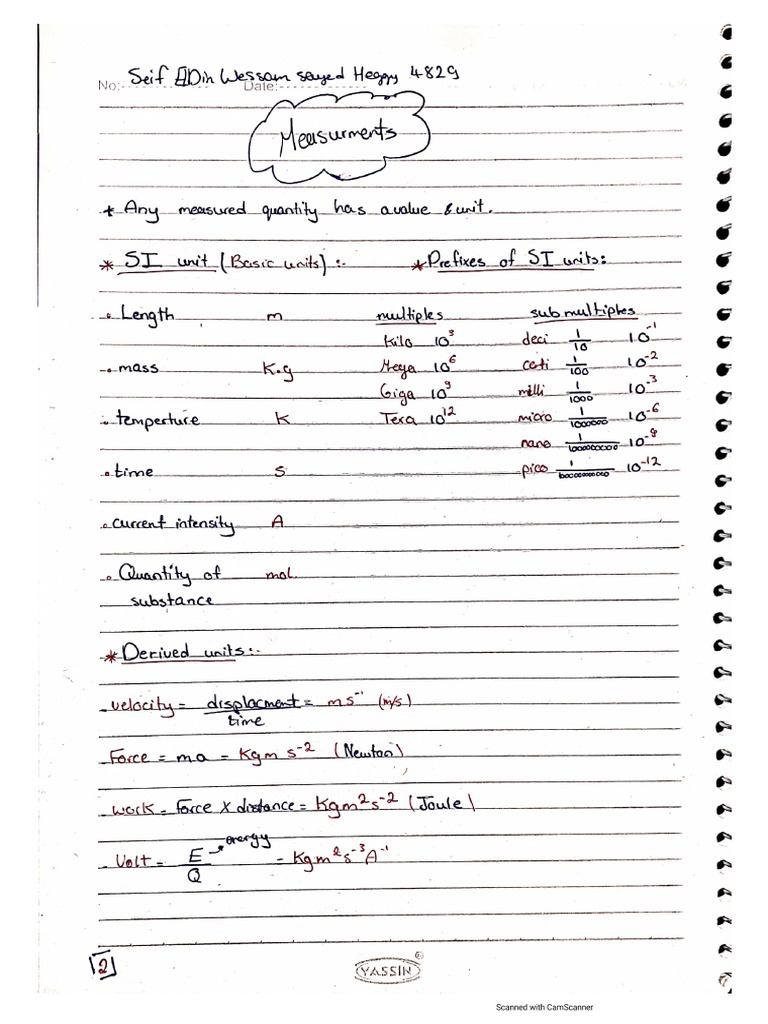 Seif ElDin Wessam sayed Heggy 4829
No: Date:
Measurments
* Any measured quantity has a value & unit.
* SI unit (Basic units):- * Prefixes of SI units:
• Length m multiples sub multiples
Kilo 10³ deci 1/10 10⁻¹
• mass K.g Mega 10⁶ centi 1/100 10⁻²
Giga 10⁹ milli 1/1000 10⁻³
• temperture K Tera 10¹² micro 1/1000000 10⁻⁶
nano 1/1000000000 10⁻⁹
• time s pico 1/10000000000 10⁻¹²
• current intensity A
• Quantity of mol.
substance
* Derived units:-
velocity = displacment/time = ms⁻¹ (m/s)
Force = m.a = Kgm s⁻² (Newton)
work = Force X distance = Kgm²s⁻² (Joule)
Volt = E/Q → energy = Kgm²s⁻³A⁻¹
2
YASSIN
Scanned with CamScanner